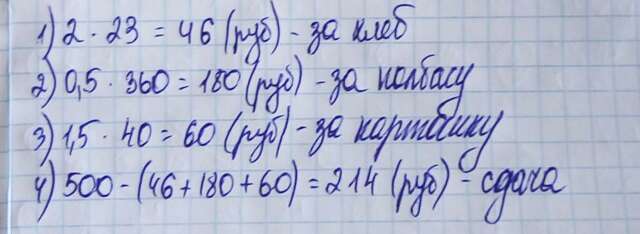 1) 2 · 23 = 46 (руб) - за хлеб
2) 0,5 · 360 = 180 (руб) - за колбасу
3) 1,5 · 40 = 60 (руб) - за картошку
4) 500 - (46 + 180 + 60) = 214 (руб) - сдача